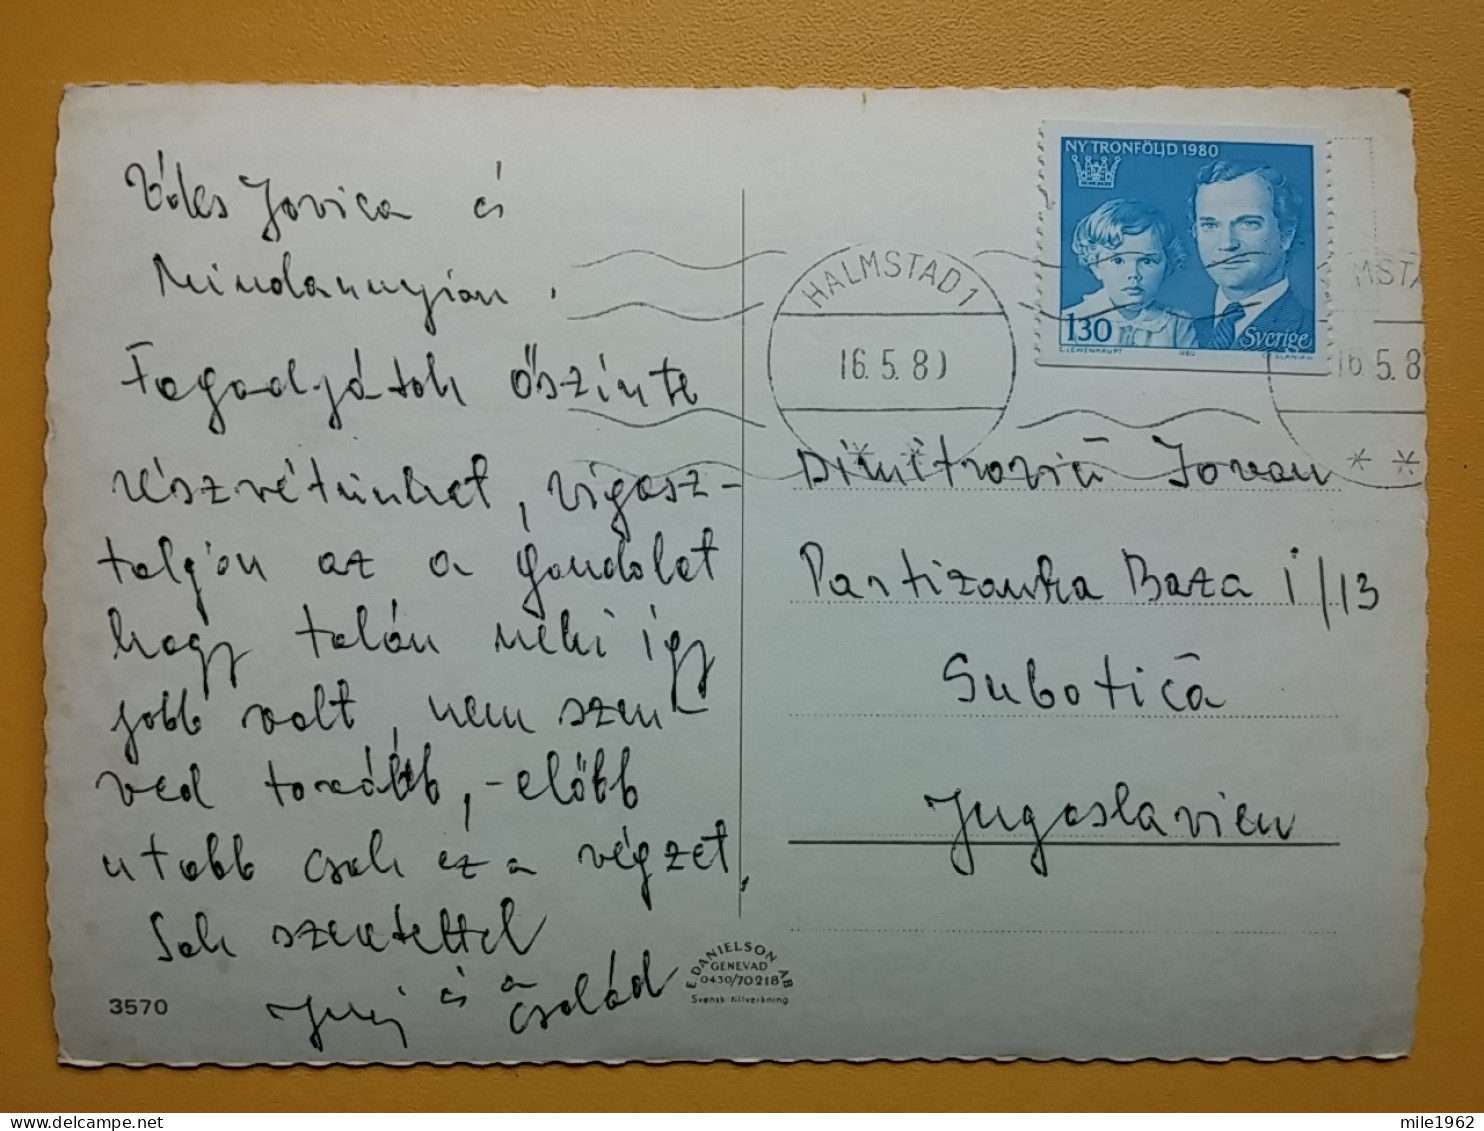 Édes Jovica és
Mindannyian.
Fogadjátok őszinte
részvétünket, vigasz-
taljon az a gondolat
hogy talán neki így
jobb volt, nem szen-
ved tovább, - előbb
utobb csak ez a végzet,
Sok szeretettel
és a
család
3570
E. DANIELSON AB
GENEVAD
0430/70218
Svensk tillverkning
NY TRONFÖLJD 1980
130
Sverige
C. LEWENHAUPT 1980 CZ SLANIA SC
HALMSTAD 1
16.5.80
MSTA
16 5.8
* *
Dimitrović Jovan
Partizanska Baza I/13
Subotica
Jugoslavien
mile1962